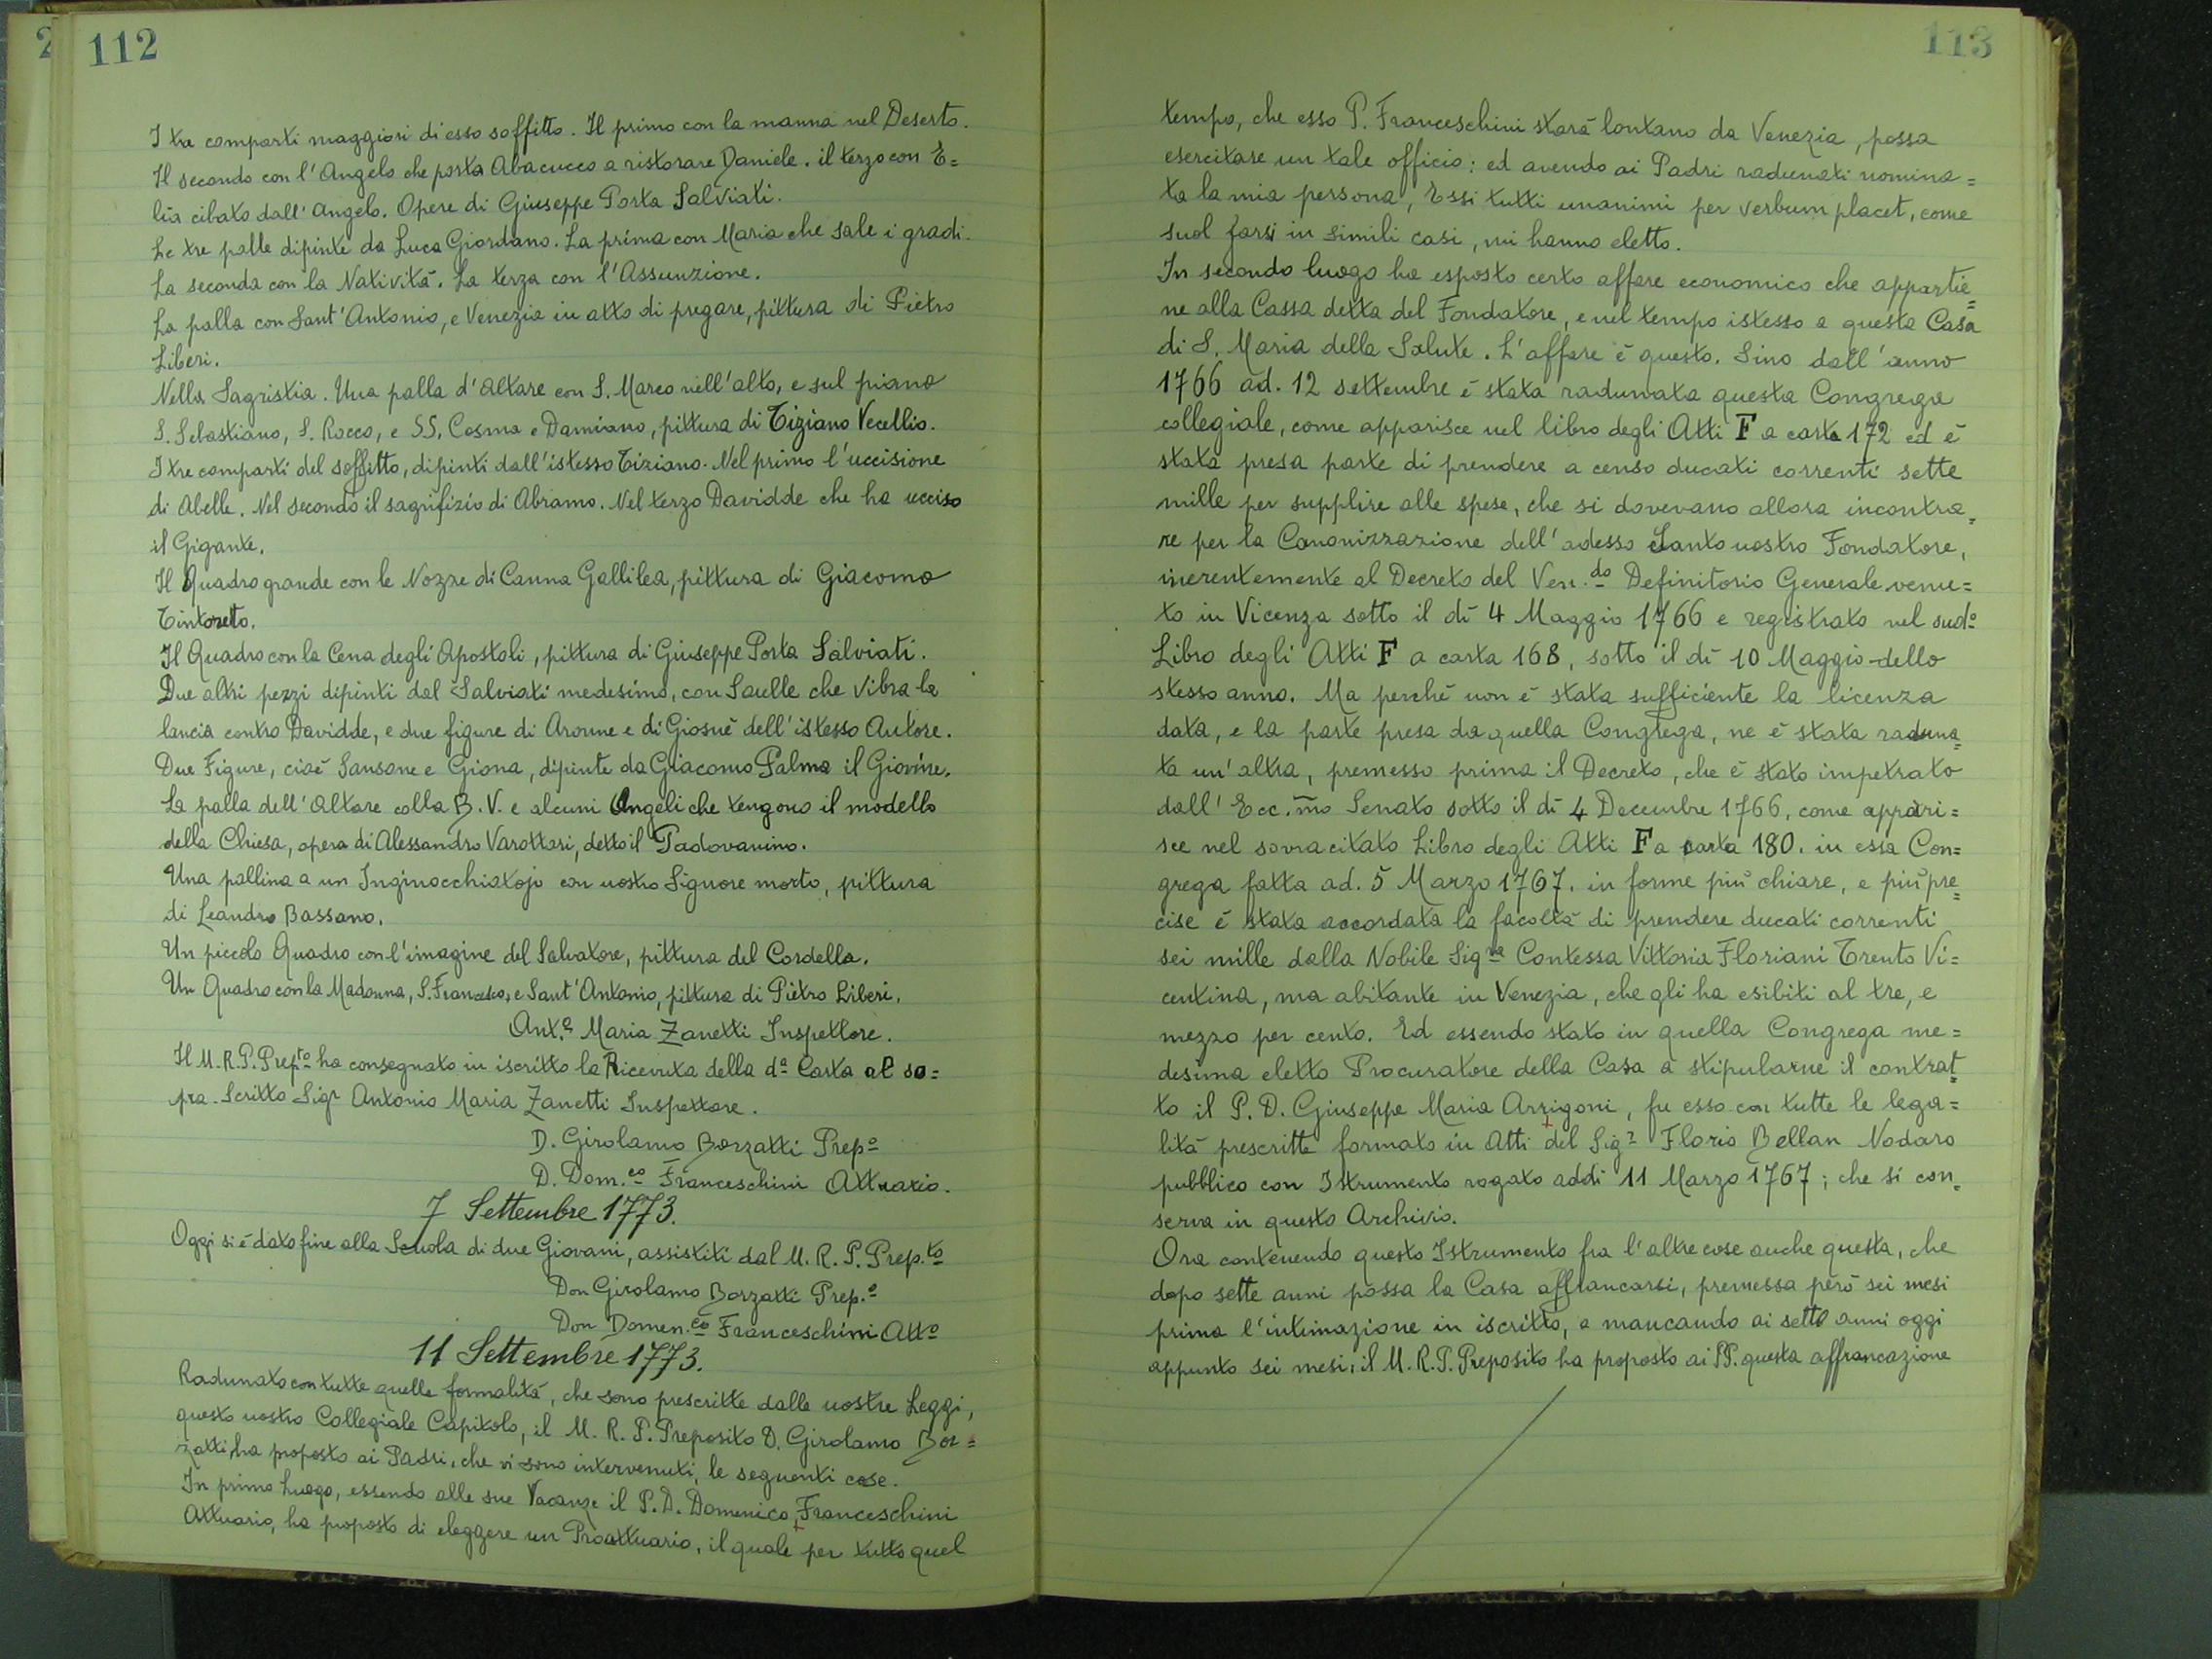 112
I tre comparti maggiori di esso soffitto. Il primo con la manna nel Deserto.
Il secondo con l'Angelo che porta Abacucco a ristorare Daniele. il terzo con E=
lia cibato dall'Angelo. Opere di Giuseppe Porta Salviati.
Le tre palle dipinte da Luca Giordano. La prima con Maria che sale i gradi.
La seconda con la Natività. La terza con l'Assunzione.
La palla con Sant'Antonio, e Venezia in atto di pregare, pittura di Pietro
Liberi.
Nella Sagristia. Una palla d'Altare con S. Marco nell'alto, e sul piano
S. Sebastiano, S. Rocco, e SS. Cosma e Damiano, pittura di Tiziano Vecellio.
I tre comparti del soffitto, dipinti dall'istesso Tiziano. Nel primo l'uccisione
di Abelle. Nel secondo il sagrifizio di Abramo. Nel terzo Davidde che ha ucciso
il Gigante.
Il Quadro grande con le Nozze di Canna Gallilea, pittura di Giacomo
Tintoreto.
Il Quadro con la Cena degli Apostoli, pittura di Giuseppe Porta Salviati.
Due altri pezzi dipinti dal Salviati medesimo, con Saulle che vibra la
lancia contro Davidde, e due figure di Aronne e di Giosuè dell'istesso Autore.
Due Figure, cioè Sansone e Giona, dipinte da Giacomo Palma il Giovine.
La palla dell'Altare colla B. V. e alcuni Angeli che tengono il modello
della Chiesa, opera di Alessandro Varottari, detto il Padovanino.
Una pallina a un Inginocchiatojo con nostro Signore morto, pittura
di Leandro Bassano.
Un piccolo Quadro con l'imagine del Salvatore, pittura del Cordella.
Un Quadro con la Madonna, S. Francesco, e Sant'Antonio, pittura di Pietro Liberi.
Ant.o Maria Zanetti Inspettore.
Il M. R. P. Prep.to ha consegnato in iscritto la Ricevuta della d.a Carta al so=
pra-Scritto Sigr Antonio Maria Zanetti Inspettore.
D. Girolamo Borzatti Prep.o
D. Dom.co Franceschini Attuario.
7 Settembre 1773.
Oggi si è dato fine alla Scuola di due Giovani, assistiti dal M. R. P. Prep.to
Don Girolamo Borzatti Prep.o
Don Domen.co Franceschini Att.o
11 Settembre 1773.
Radunato con tutte quelle formalità, che sono prescritte dalle nostre Leggi,
questo nostro Collegiale Capitolo, il M. R. P. Preposito D. Girolamo Bor=
zatti, ha proposto ai Padri, che vi sono intervenuti, le seguenti cose.
In primo luogo, essendo alle sue Vacanze il P. D. Domenico Franceschini
Attuario, ha proposto di eleggere un Proattuario, il quale per tutto quel
113
tempo, che esso P. Franceschini starà lontano da Venezia, possa
esercitare un tale officio: ed avendo ai Padri radunati nomina=
ta la mia persona, Essi tutti unanimi per verbum placet, come
suol farsi in simili casi, mi hanno eletto.
In secondo luogo ha esposto certo affare economico che appartie=
ne alla Cassa detta del Fondatore, e nel tempo istesso a questa Casa
di S. Maria della Salute. L'affare è questo. Sino dall'anno
1766 ad. 12 settembre è stata radunata questa Congrega
collegiale, come apparisce nel libro degli Atti F a carta 172 ed è
stata presa parte di prendere a censo ducati correnti sette
mille per supplire alle spese, che si dovevano allora incontra=
re per la Canonizzazione dell'adesso Santo nostro Fondatore,
inerentemente al Decreto del Ven.do Definitorio Generale venu=
to in Vicenza sotto il dì 4 Maggio 1766 e registrato nel sud.o
Libro degli Atti F a carta 168, sotto il dì 10 Maggio dello
stesso anno. Ma perchè non è stata sufficiente la licenza
data, e la parte presa da quella Congrega, ne è stata raduna=
ta un'altra, premesso prima il Decreto, che è stato impetrato
dall'Ecc.mo Senato sotto il dì 4 Decembre 1766, come appari=
sce nel sovracitato Libro degli Atti F a carta 180. in essa Con=
grega fatta ad. 5 Marzo 1767. in forme più chiare, e più pre=
cise è stata accordata la facoltà di prendere ducati correnti
sei mille dalla Nobile Sig.ra Contessa Vittoria Floriani Trento Vi=
centina, ma abitante in Venezia, che gli ha esibiti al tre, e
mezzo per cento. Ed essendo stato in quella Congrega me=
desima eletto Procuratore della Casa a stipularne il contrat=
to il P. D. Giuseppe Maria Arrigoni, fu esso con tutte le lega=
lità prescritte formato in Atti del Sig.r Florio Bellan Nodaro
pubblico con Istrumento rogato addì 11 Marzo 1767; che si con=
serva in questo Archivio.
Ora contenendo questo Istrumento fra l'altre cose anche questa, che
dopo sette anni possa la Casa affrancarsi, premessa però sei mesi
prima l'intimazione in iscritto, e mancando ai sette anni oggi
appunto sei mesi, il M. R. P. Preposito ha proposto ai PP. questa affrancazione